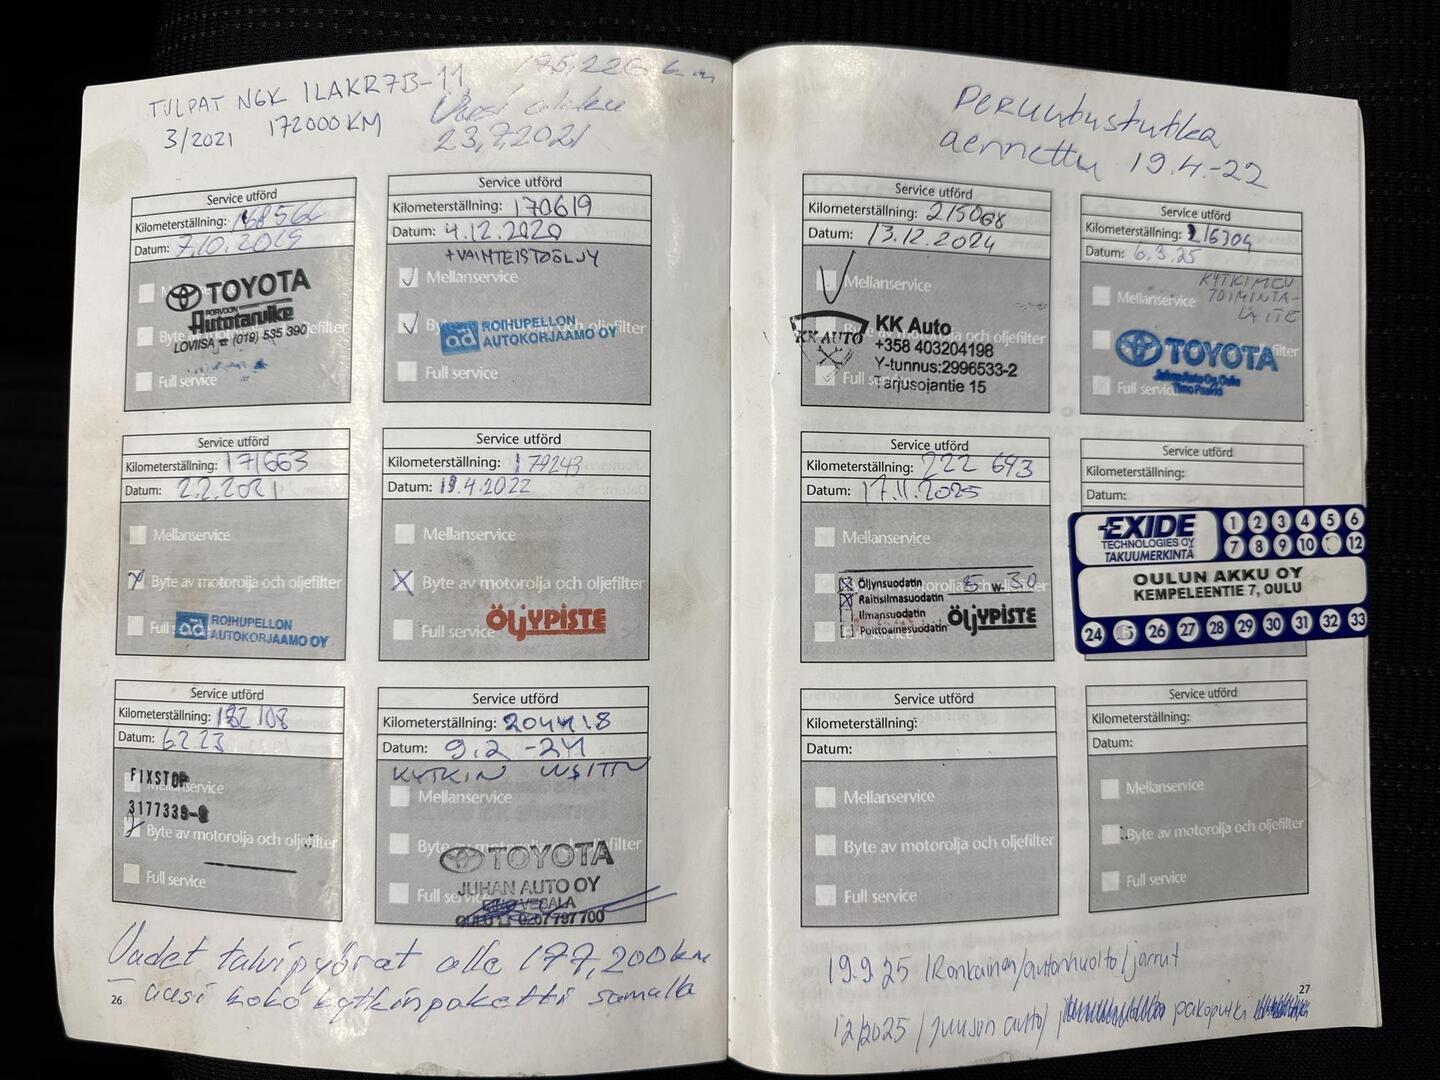 TULPAT NGK ILAKR7B-11
3/2021 172000 KM
175,226 km
Uusi akku
23,7,2021
Service utförd
Kilometerställning: 168566
Datum: 7.10.2019
TOYOTA
PORVOON
Autotarvike
LOVIISA ☎ (019) 535 390
Full service
Service utförd
Kilometerställning: 170619
Datum: 4.12.2020
+VAIHTEISTOÖLJY
Mellanservice
ad ROIHUPELLON
AUTOKORJAAMO OY
Full service
Service utförd
Kilometerställning: 171663
Datum: 2.2.2021
Mellanservice
Byte av motorolja och oljefilter
Full
ad ROIHUPELLON
AUTOKORJAAMO OY
Service utförd
Kilometerställning: 179243
Datum: 19.4.2022
Mellanservice
Byte av motorolja och oljefilter
Full service
ÖLJYPISTE
Service utförd
Kilometerställning: 182 108
Datum: 6.2.23
FIXSTOP
Mellanservice
3177339-8
Byte av motorolja och oljefilter
Full service
Service utförd
Kilometerställning: 204418
Datum: 9.2 -24
KYTKIN UUSITTU
Mellanservice
TOYOTA
JUHAN AUTO OY
Full
OULU 0207 797 700
Uudet talvipyörät alle 177,200 km
- uusi koko kytkinpaketti samalla
26
Peruutustutka
asennettu 19.4.-22
Service utförd
Kilometerställning: 215068
Datum: 13.12.2024
Mellanservice
KK AUTO
KK Auto
+358 403204198
Y-tunnus:2996533-2
Tarjusojantie 15
Full
Service utförd
Kilometerställning: 216304
Datum: 6.3.25
KYTKIMEN
TOIMINTA-
LAITE
Mellanservice
TOYOTA
Juhan Auto Oy, Oulu
Full service
Service utförd
Kilometerställning: 222 643
Datum: 17.11.2025
Mellanservice
Öljynsuodatin 5 W-30
Raitisilmasuodatin
Ilmansuodatin
Polttoainesuodatin
ÖLJYPISTE
Service utförd
Kilometerställning:
Datum:
EXIDE
TECHNOLOGIES OY
TAKUUMERKINTÄ
1 2 3 4 5 6
7 8 9 10 12
OULUN AKKU OY
KEMPELEENTIE 7, OULU
24 25 26 27 28 29 30 31 32 33
Service utförd
Kilometerställning:
Datum:
Mellanservice
Byte av motorolja och oljefilter
Full service
Service utförd
Kilometerställning:
Datum:
Mellanservice
Byte av motorolja och oljefilter
Full service
19.9.25 /Ronkainen/autonhuolto/jarrut
27
12/2025 / Juuson auto/ pakoputki